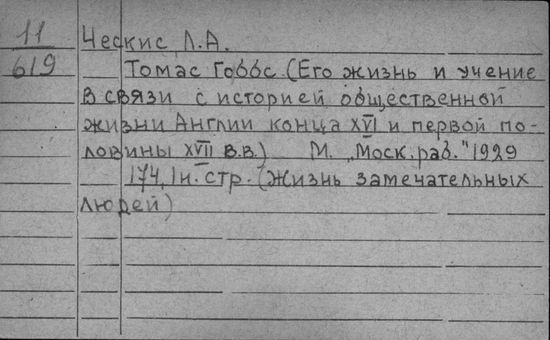 11 Ческис Л.А.
619 Томас Гоббс (Его жизнь и учение
в связи с историей общественной
жизни Англии конца XVI и первой по-
ловины XVII в.в.) М. „Моск. раб." 1929
174, 1н. стр. (Жизнь замечательных
людей)